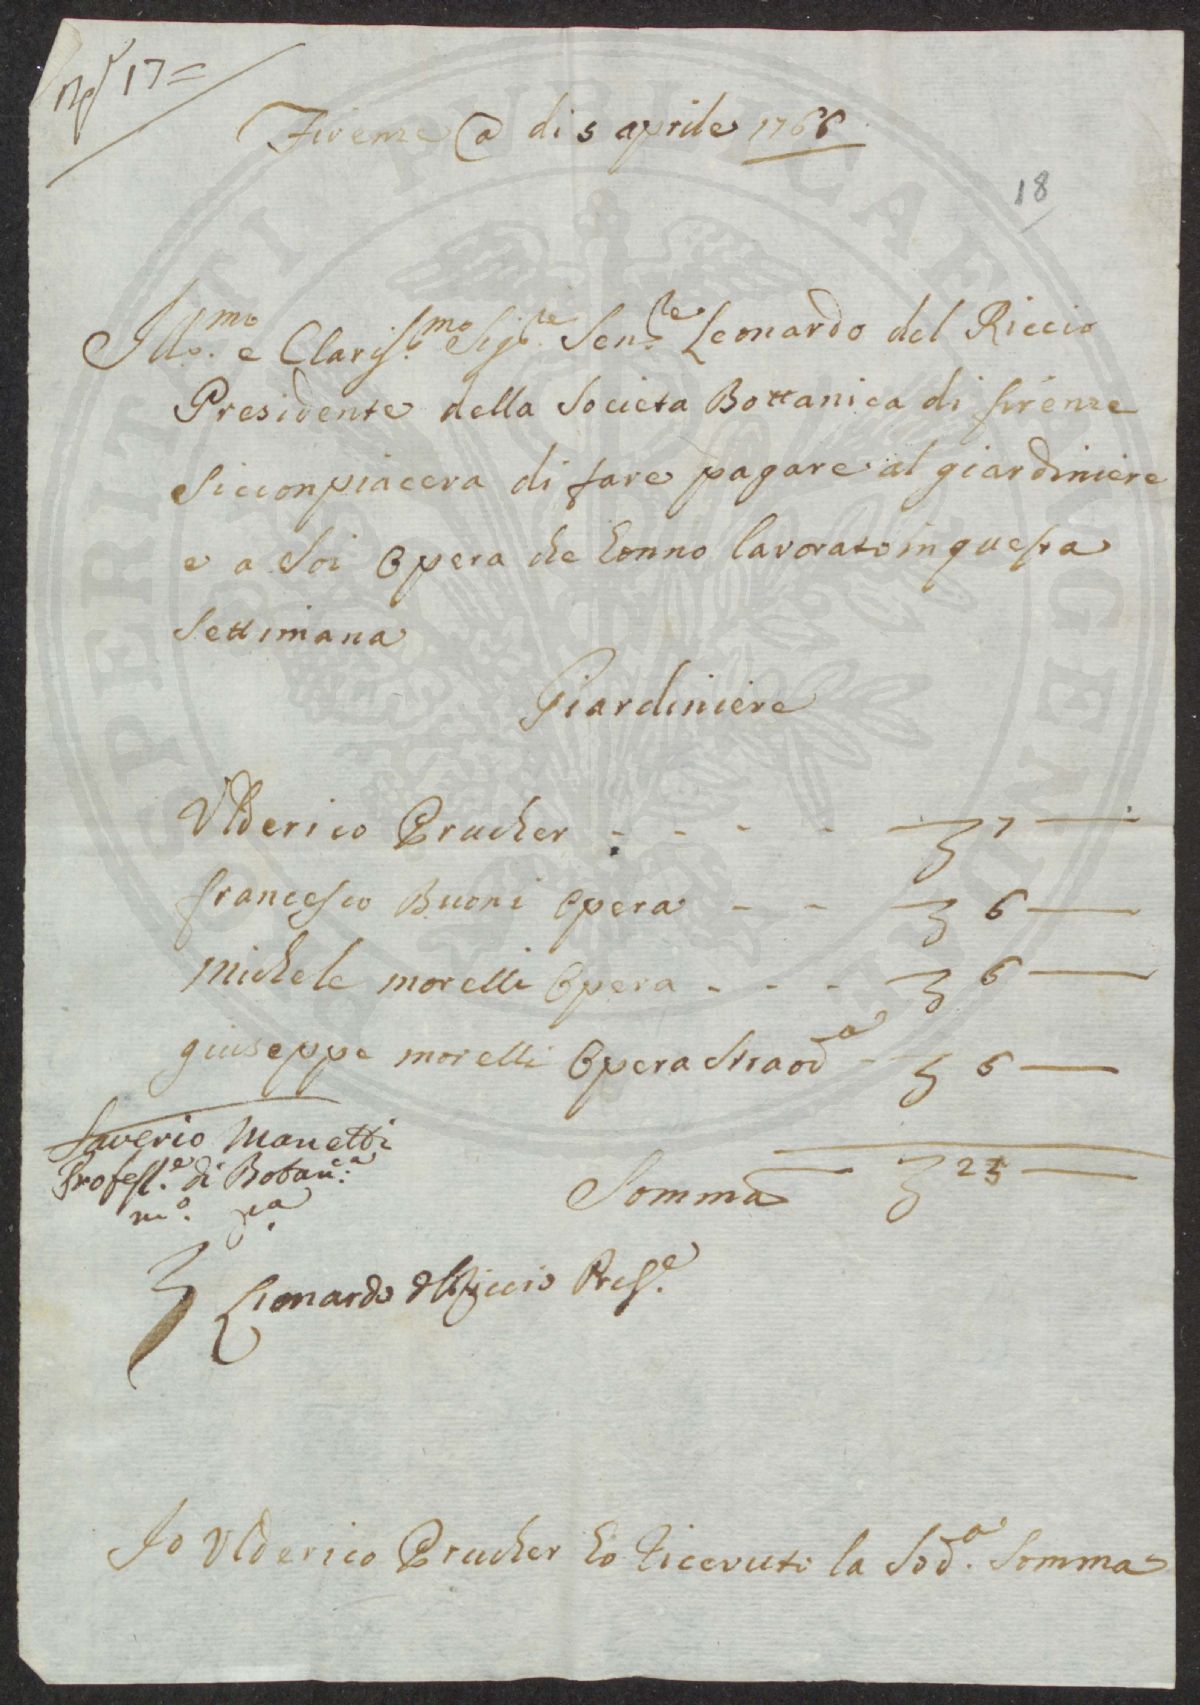 N° 17=
Firenze @ di 5 aprile 1766
18
Ill.mo e Claris.mo Sig.re Sen.re Leonardo del Riccio
Presidente della Societa Bottanica di firenze
Sicconpiacera di fare pagare al giardiniere
e a Soi Opera che honno lavorato in questa
Settimana
Giardiniere
Ulderico Prucher - - - - 7 —
francesco Buoni Opera - - 6 —
Michele morelli Opera - - - 6 —
giuseppe morelli Opera Straod.a - 6 —
Saverio Manetti
Profess.e di Botan.ca
m.o pa
Somma 25 —
Lionardo del Riccio Pres.e
Io Ulderico Prucher ho ricevuto la Sod.a Somma
PROSPERITATI PUBLICAE AUGENDAE